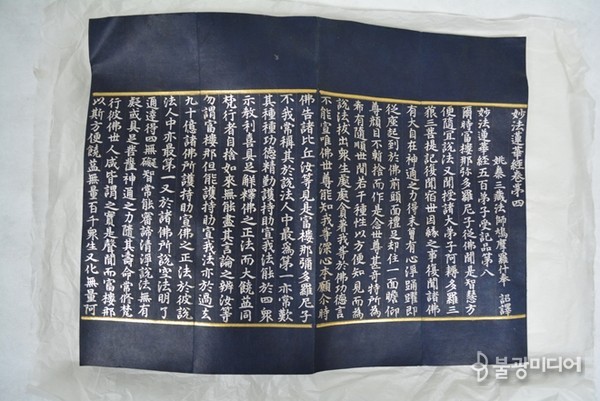 妙法蓮華經卷第四
姚秦三藏法師鳩摩羅什奉 詔譯
妙法蓮華經五百弟子受記品第八
爾時富樓那彌多羅尼子從佛聞是智慧方
便隨宜說法又聞授諸大弟子阿耨多羅三
藐三菩提記復聞宿世因緣之事復聞諸佛
有大自在神通之力得未曾有心淨踊躍即
從座起到於佛前頭面禮足却住一面瞻仰
尊顏目不暫捨而作是念世尊甚奇特所為
希有隨順世間若干種性以方便知見而為
說法拔出衆生處處貪着我等於佛功德言
不能宣唯佛世尊能知我等深心本願爾時
佛告諸比丘汝等見是富樓那彌多羅尼子
不我常稱其於說法人中最為第一亦常歎
其種種功德精勤護持助宣我法能於四衆
示教利喜具足解釋佛之正法而大饒益同
梵行者自捨如來無能盡其言論之辯汝等
勿謂富樓那但能護持助宣我法亦於過去
九十億諸佛所護持助宣佛之正法於彼說
法人中亦最第一又於諸佛所說空法明了
通達得四無礙智常能審諦清淨說法無有
疑惑具足菩薩神通之力隨其壽命常修梵
行彼佛世人咸皆謂之實是聲聞而富樓那
以斯方便饒益無量百千衆生又化無量阿
불광미디어